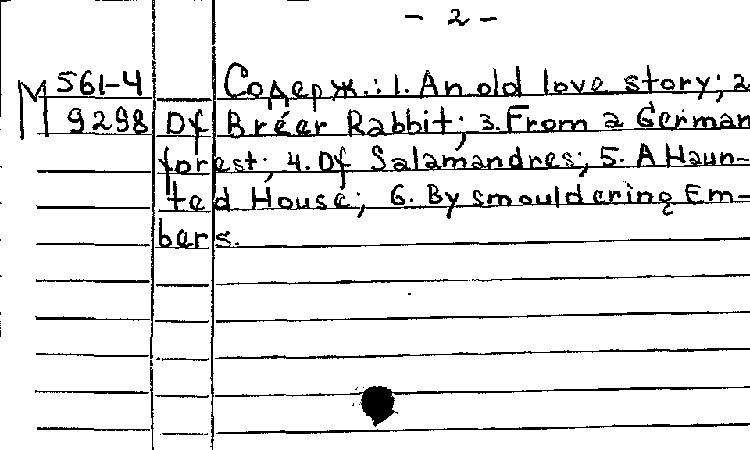 - 2 -
М 561-4 Содерж.: 1. An old love story; 2
9298 Of Bréer Rabbit; 3. From a German
forest; 4. Of Salamandres; 5. A Haun-
ted House; 6. By smouldering Em-
bers.